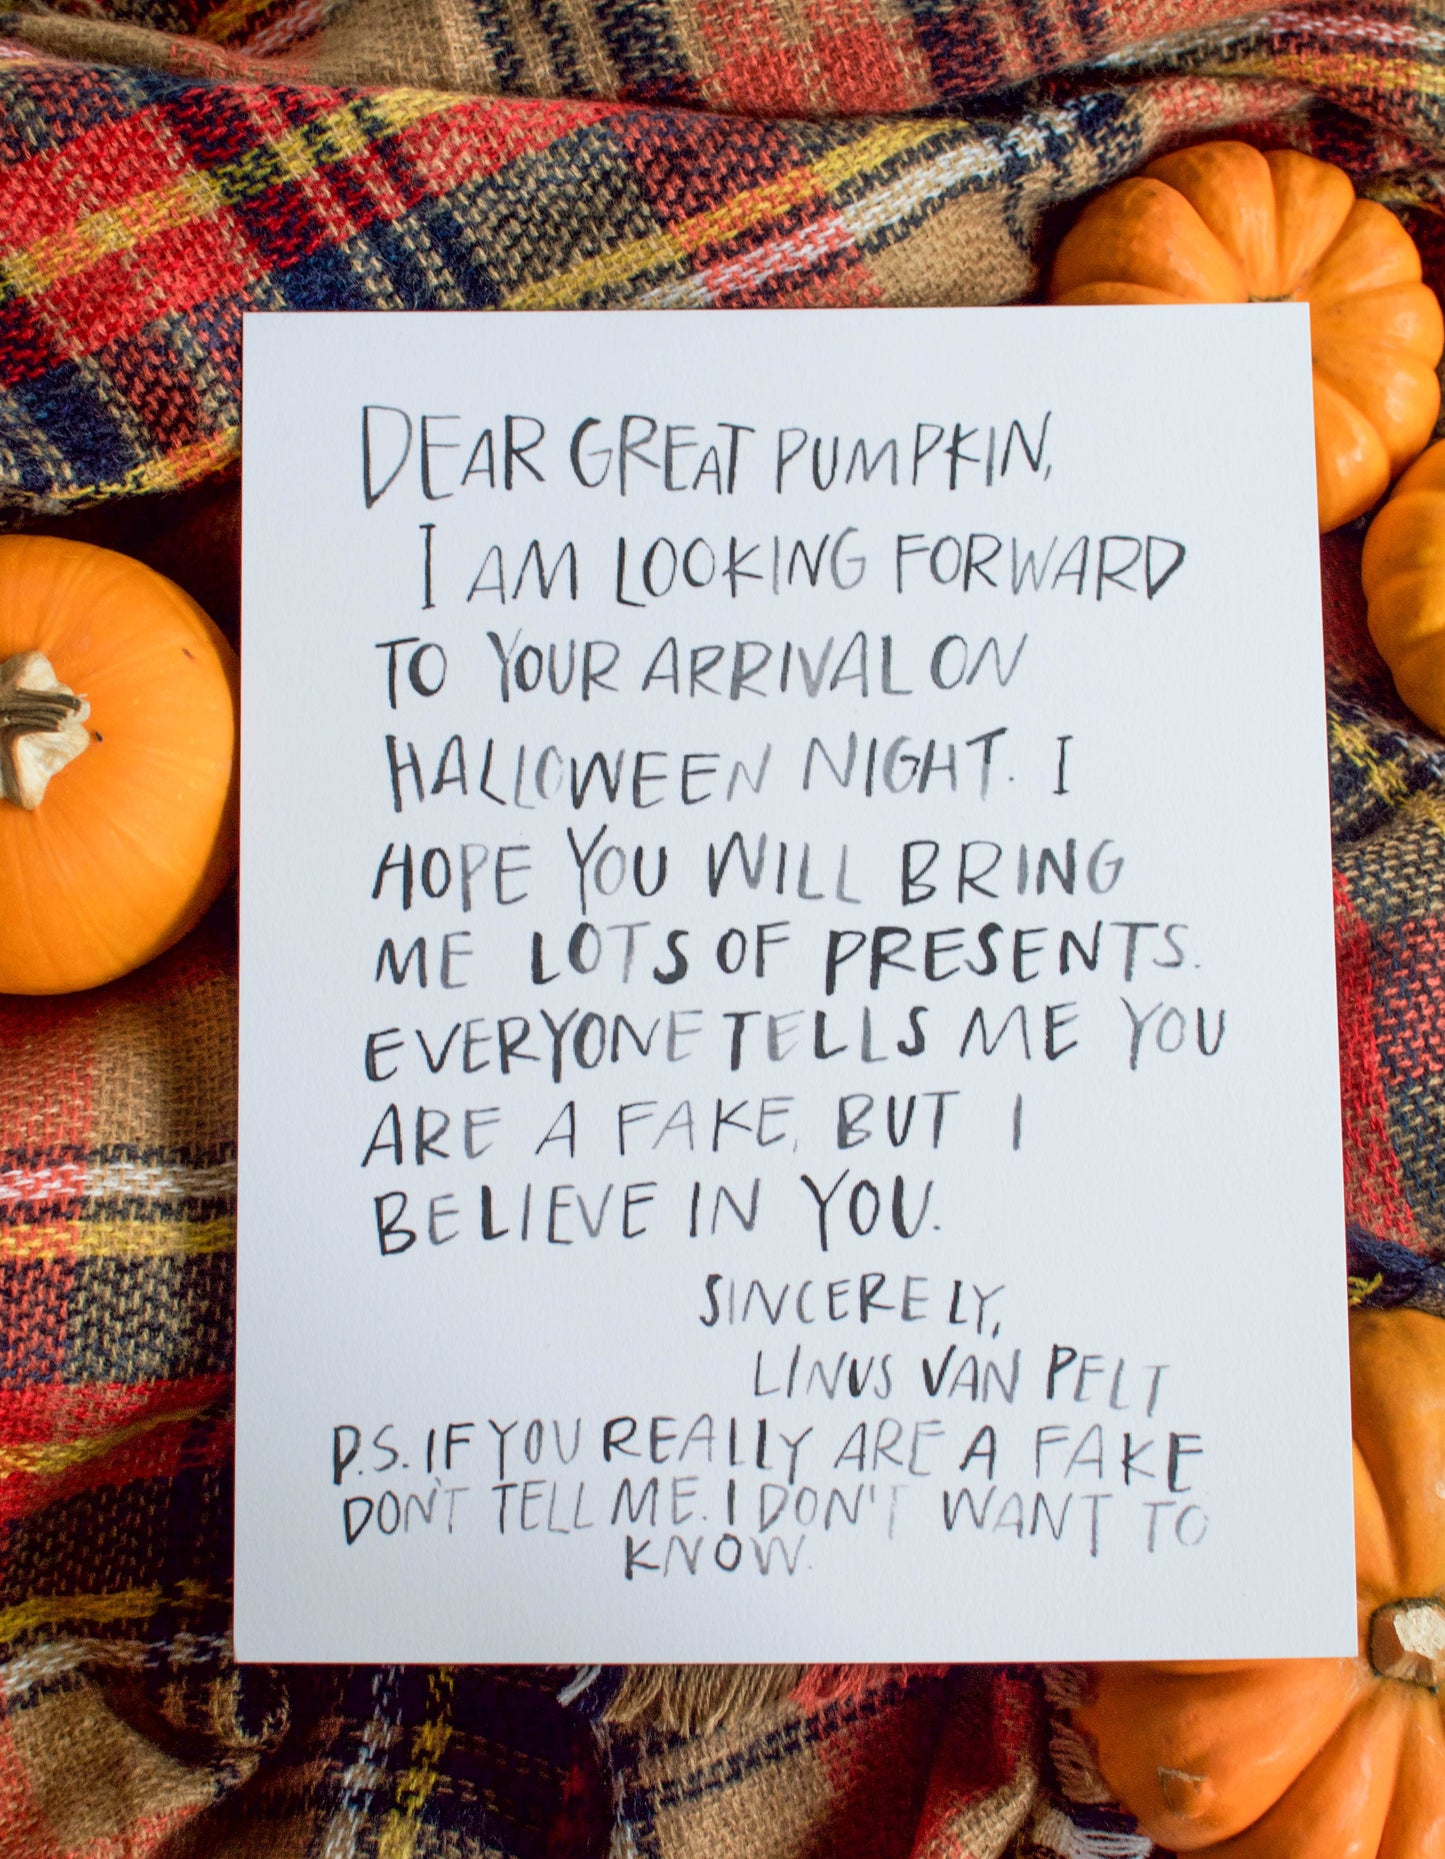 DEAR GREAT PUMPKIN,
I AM LOOKING FORWARD
TO YOUR ARRIVAL ON
HALLOWEEN NIGHT. I
HOPE YOU WILL BRING
ME LOTS OF PRESENTS.
EVERYONE TELLS ME YOU
ARE A FAKE, BUT I
BELIEVE IN YOU.
SINCERELY,
LINUS VAN PELT
P.S. IF YOU REALLY ARE A FAKE
DON'T TELL ME. I DON'T WANT TO
KNOW.